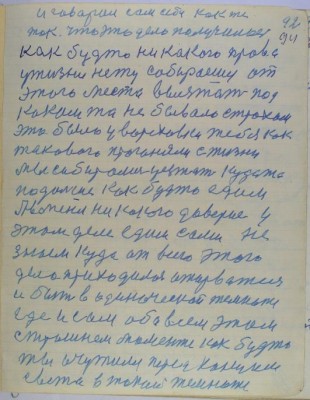 и говорил сам себе как же 92
так. что это дело получилось 94
как будто ни какого права
у жизни нету собираемы от
этого места выезжать под
каким та не бывало страхом
это было у верховки тебя как
такового прогоняли с жизни
мы собирались уезжать куда та
подальше как будто едим
Меня ни какого доверие у
этом деле едим сами не
знаем куда от всего этого
дела приходилось отарватся
и быть в одиначеской темноте
где и сам обо всем этом
страшном моменте как будто
мы очутились перед концом
света в такой темноте